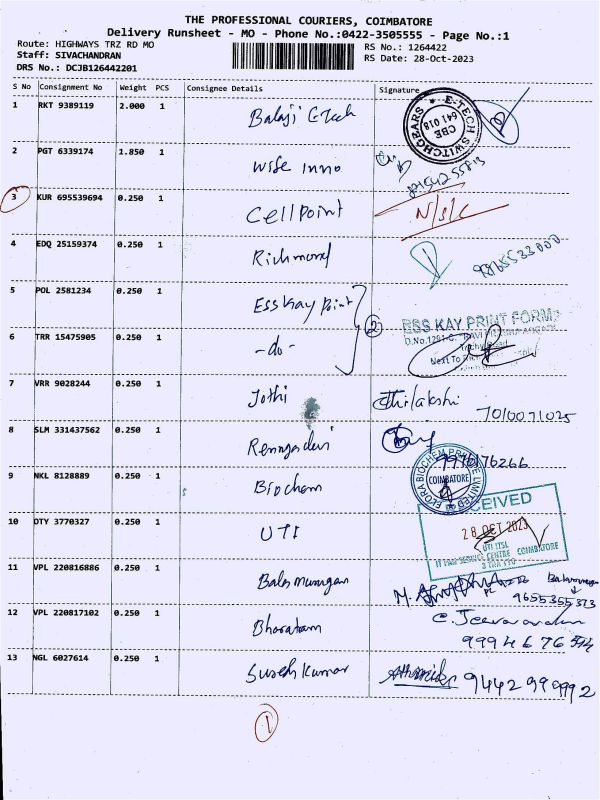 THE PROFESSIONAL COURIERS, COIMBATORE
Delivery Runsheet - MO - Phone No.:0422-3505555 - Page No.:1
Route: HIGHWAYS TRZ RD MO
RS No.: 1264422
Staff: SIVACHANDRAN
RS Date: 28-Oct-2023
DRS No.: DCJB126442201
S No Consignment No Weight PCS Consignee Details Signature
1 RKT 9389119 2.000 1 Balaji E-Tech
E-TECH SWITCHGEARS
CBE
641 018
2 PGT 6339174 1.850 1 Wise Inno
3 KUR 695539694 0.250 1 Cellpoint N/S/C
4 EDQ 25159374 0.250 1 Richmond 9865533000
5 POL 2581234 0.250 1 Ess Kay Print
2
ESS KAY PRINT FORMS
6 TRR 15475905 0.250 1 -do-
Next To
7 VRR 9028244 0.250 1 Jothi Thilakshi 7010071025
8 SLM 331437562 0.250 1 Renugadevi
9976176266
9 NKL 8128889 0.250 1 Biochem
FLORA BIOCHEM PRIVATE LIMITED
COIMBATORE
RECEIVED
10 DTY 3770327 0.250 1 UTI
28 OCT 2023
UTI ITSL
IT PAN SERVICE CENTRE COIMBATORE
11 VPL 220816886 0.250 1 Balamurugan
9655355373
12 VPL 220817102 0.250 1 Bharatam
C. Jeevanandam
13 NGL 6027614 0.250 1 Suresh Kumar
1